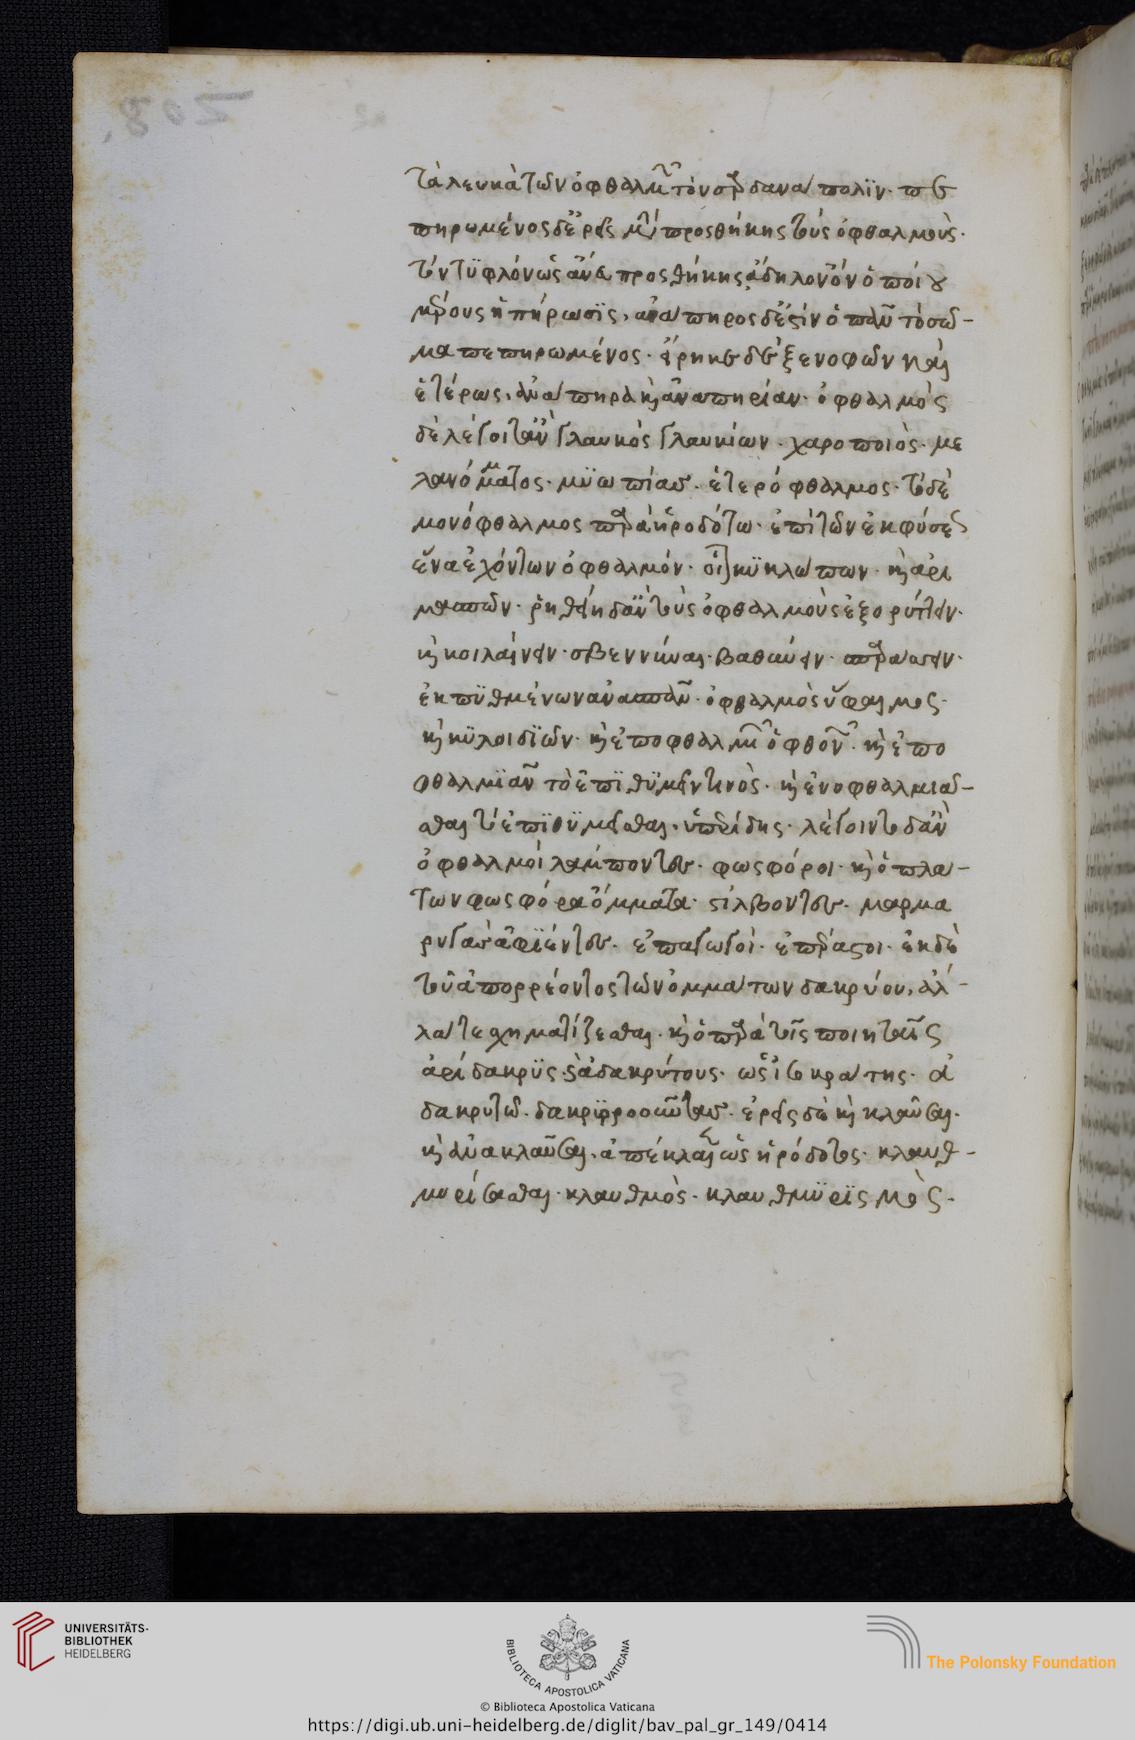 τὰ λευκὰ τῶν ὀφθαλμῶν τὸν
πεπηρωμένος δὲ ἐρεῖς μετὰ προσθήκης τοὺς ὀφθαλμούς.
τὸν τϋφλόν ὡς ἄνευ προσθήκης ἄδηλον ὂν ὁποίου
μέρους ἡ πήρωσϊς, ἀνάπηρος δέ ἐστιν ὁ πᾶν τὸ σῶ-
μα πεπηρωμένος. εἴρηκε δὲ ξενοφῶν καὶ
ἑτέρως, ἀνάπηρα καὶ ἀναπηρίαν. ὀφθαλμὸς
δὲ λέγοιτ' ἂν γλαυκὸς γλαυκίων. χαροποιὸς. με
λανόμματος. μϋωπίας. ἑτερόφθαλμος. ὁ δὲ
μονόφθαλμος παρὰ ἡροδότω. ἐπὶ τῶν ἐκ φύσεως
ἕνα ἐχόντων ὀφθαλμόν. οἷον κϋκλώπων. καὶ ἀρι
μασπῶν. ῥηθείη δ' ἂν τοὺς ὀφθαλμοὺς ἐξορύττειν.
καὶ κοιλαίνειν. σβεννύναι. βαθύνειν.
ἐκ πϋθμένων ἀνασπᾶν. ὀφθαλμὸς ὕφαιμος.
καὶ κϋλοιδϊῶν. καὶ ἐποφθαλμ
φθαλμϊᾶν τὸ ἐπϊθϋμεῖν τινὸς. καὶ ἐνοφθαλμιά-
σθαι τὸ ἐπϊθϋμεῖσθαι. ὑπερίδης. λέγοιντο δ' ἂν
ὀφθαλμοὶ λάμποντες. φωσφόροι. καὶ ὁ πλά-
των φωσφόρα ὄμματα. στίλβοντες. μαρμα
ρυγὰς ἀφϊέντες. ἐπαγωγοὶ. ἐπέραστοι. ἐκ δὲ
τοῦ ἀπορρέοντος τῶν ὀμμάτων δακρύου, ἀλ-
λα τε σχηματίζεσθαι. καὶ ὁ παρὰ τοῖς ποιηταῖς
ἀρίδακρϋς. ἀδακρύτους. ὡς ἰσοκράτης. ἀ
δακρυτῶ. δακρϋρροοῦντας. ἐρεῖς δὲ καὶ κλαῦσαι.
καὶ ἀνακλαῦσαι. ἀπέκλαιεν ὡς ἡρόδοτος. κλαυθ-
μυρίσασθαι. κλαυθμὸς. κλαυθμϋρϊσμὸς.
UNIVERSITÄTS-
BIBLIOTHEK
HEIDELBERG
BIBLIOTECA APOSTOLICA VATICANA
The Polonsky Foundation
© Biblioteca Apostolica Vaticana
https://digi.ub.uni-heidelberg.de/diglit/bav_pal_gr_149/0414